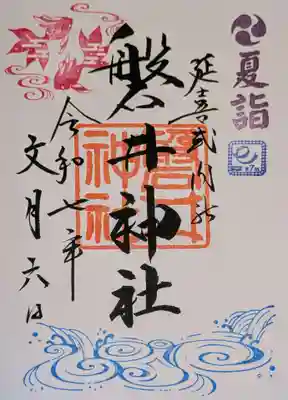 夏詣
延喜式内社
磐井神社
令和七年
文月六日